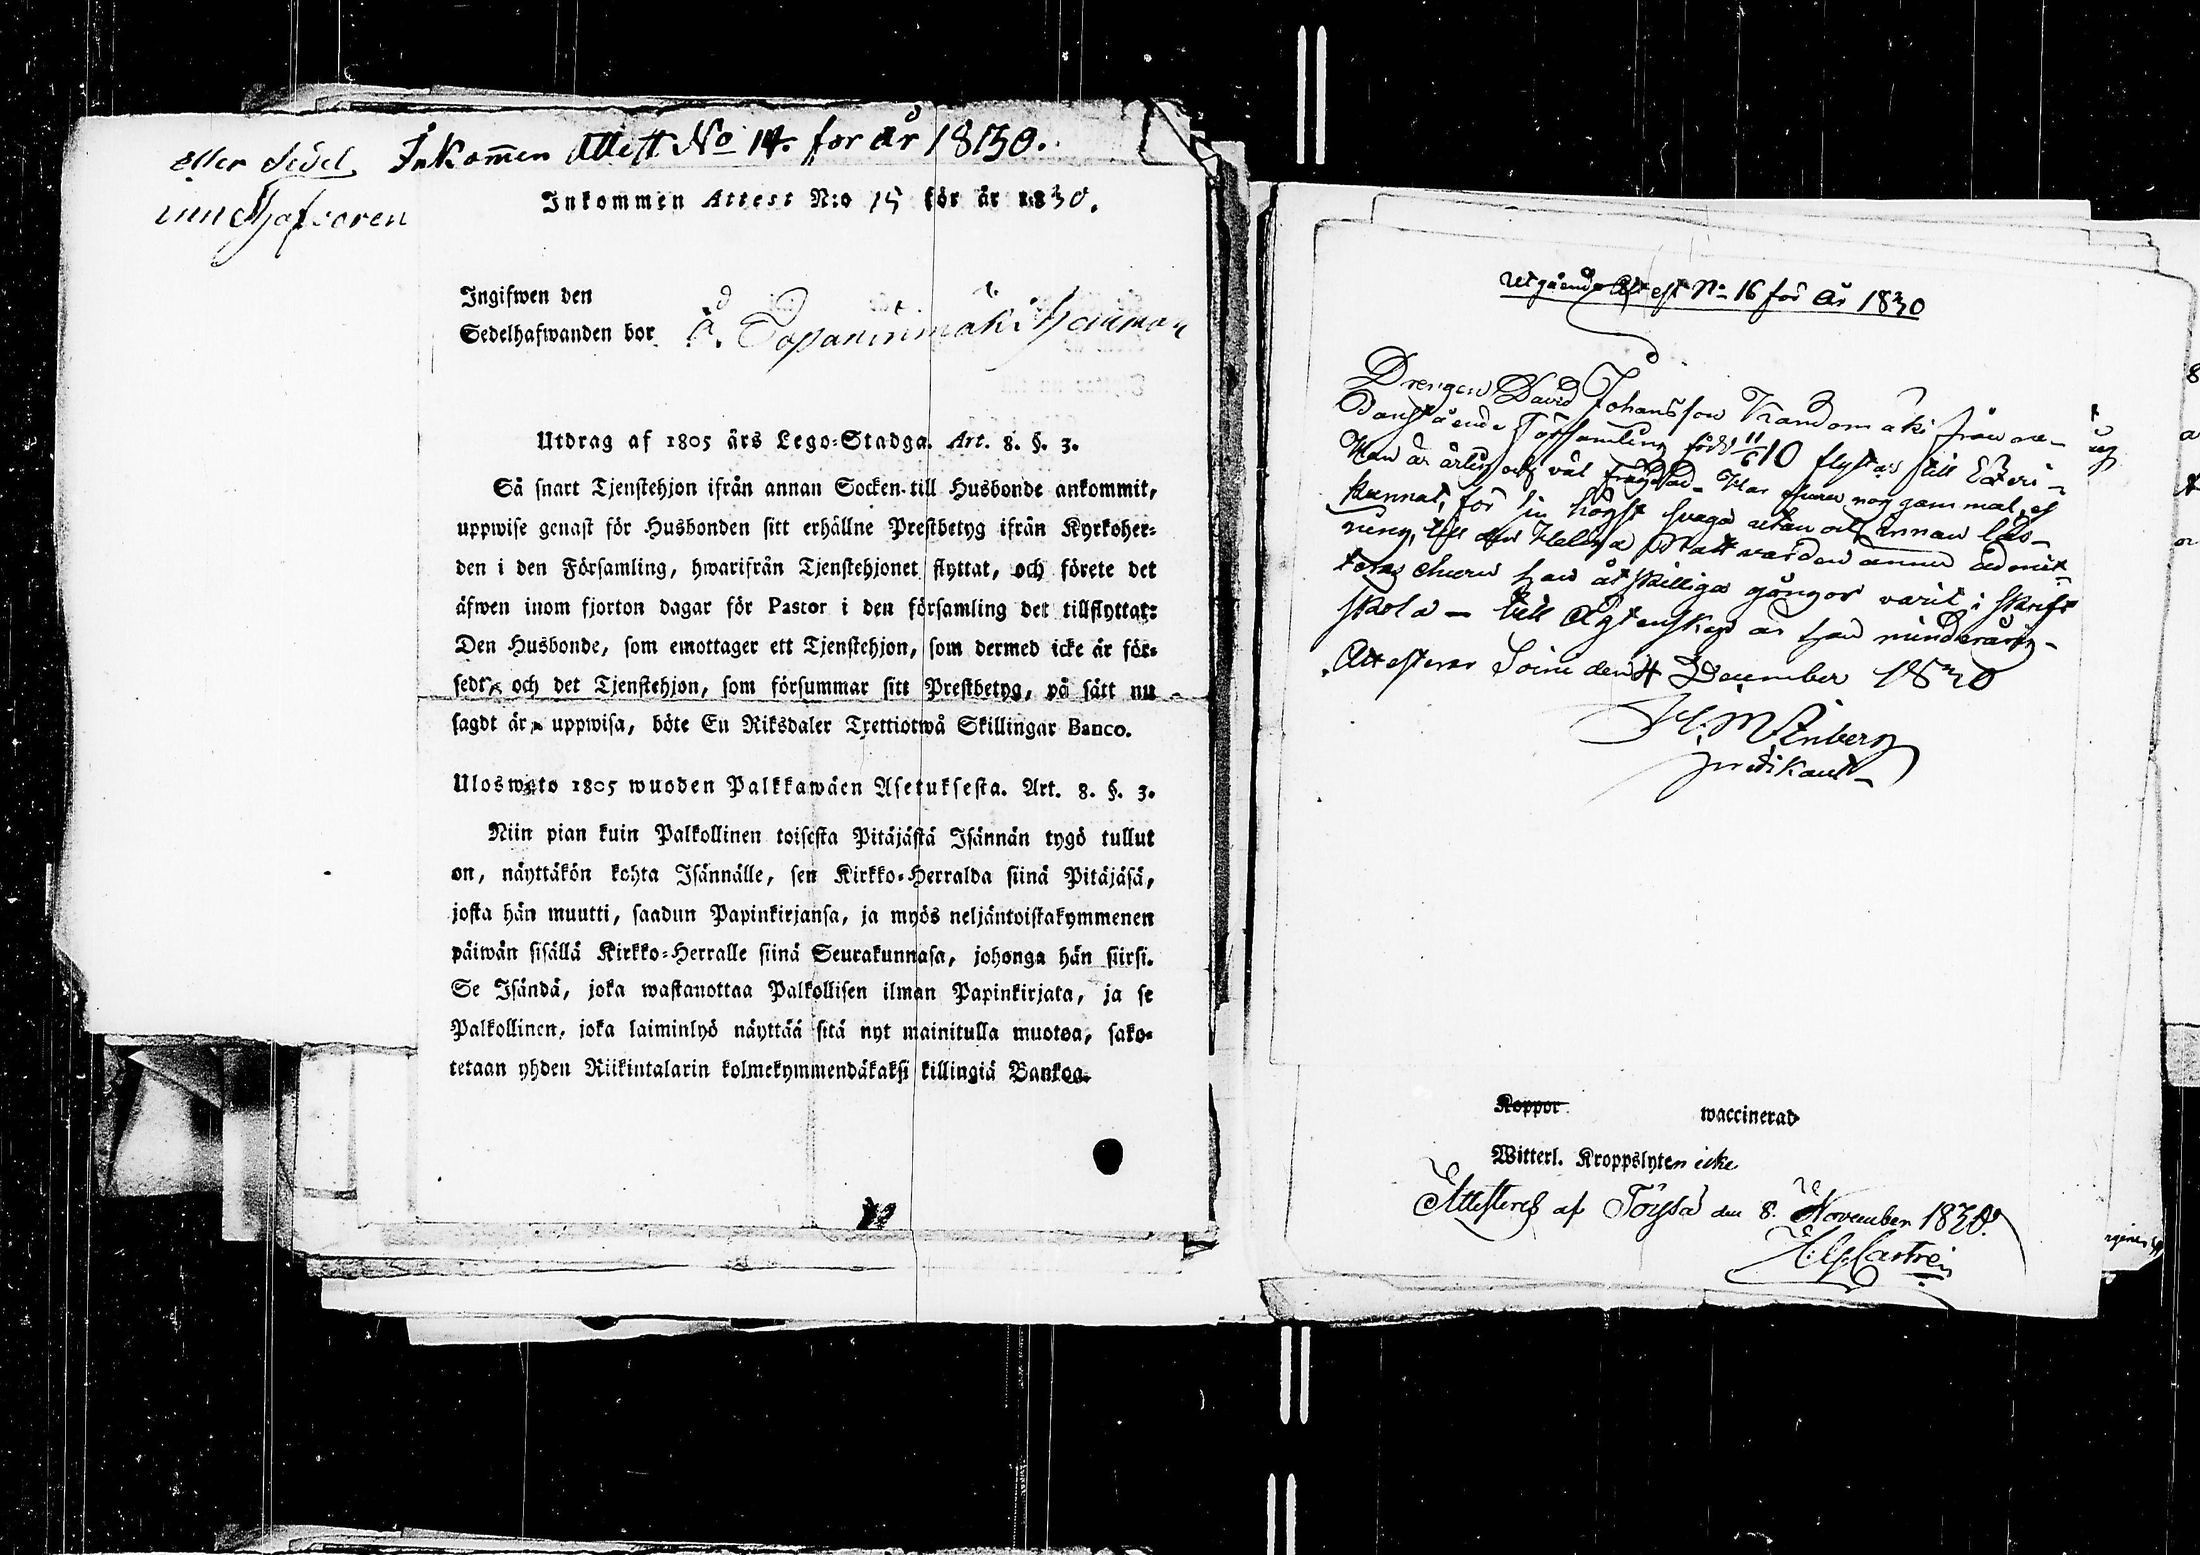 eller Sedel
innehafvaren
Inkom̄en Attest No 14. for år 1830.
Inkommen Attest N:o 15 för år 1830.
Ingifwen den
Sedelhafwanden bor å Tapaninmäki Hemman
Utdrag af 1805 års Lego-Stadga. Art. 8. §. 3.
Så snart Tjenstehjon ifrån annan Socken till Husbonde ankommit,
uppwise genast för Husbonden sitt erhållne Prestbetyg ifrån Kyrkoher-
den i den Församling, hwarifrån Tjenstehjonet flyttat, och förete det
äfwen inom fjorton dagar för Pastor i den församling det tillflyttat:
Den Husbonde, som emottager ett Tjenstehjon, som dermed icke är för-
sedt, och det Tjenstehjon, som försummar sitt Prestbetyg, på sätt nu
sagdt är, uppwisa, böte En Riksdaler Trettiotwå Skillingar Banco.
Ulosweto 1805 wuoden Palkkawäen Asetuksesta. Art. 8. §. 3.
Niin pian kuin Palkollinen toisesta Pitäjästä Isännän tygö tullut
on, näyttäkön kohta Isännälle, sen Kirkko-Herralda siinä Pitäjäsä,
josta hän muutti, saadun Papinkirjansa, ja myös neljäntoistakymmenen
päiwän sisällä Kirkko-Herralle siinä Seurakunnasa, johonga hän siirsi.
Se Isändä, joka wastanottaa Palkollisen ilman Papinkirjata, ja se
Palkollinen, joka laiminlyö näyttää sitä nyt mainitulla muotoa, sako-
tetaan yhden Riikintalarin kolmekymmendäkaksi killingiä Bankoa.
Utgående Attest No 16 för år 1830
Drengen David Johansson Kandomäki från ne-
danstående Församling född 11/6 10 flyttar till Etseri-
Han är ärlig och väl frägdad. Har ehuru nog gammal, ej
kunnat, för sin högst svaga utan och innan läs-
ning, till den Heliga Nattvarden ännu admit-
teras ehuru han åtskilliga gångor varit i skrift
skola — till Ägtenskap är han minderårig-
Attesterar Soini den 4 December 1830
H. M. Enberg
predikant
Koppor waccinerad
Witterl. Kroppslyten icke
Attesteras af Töysä den 8. November 1830.
Castrén